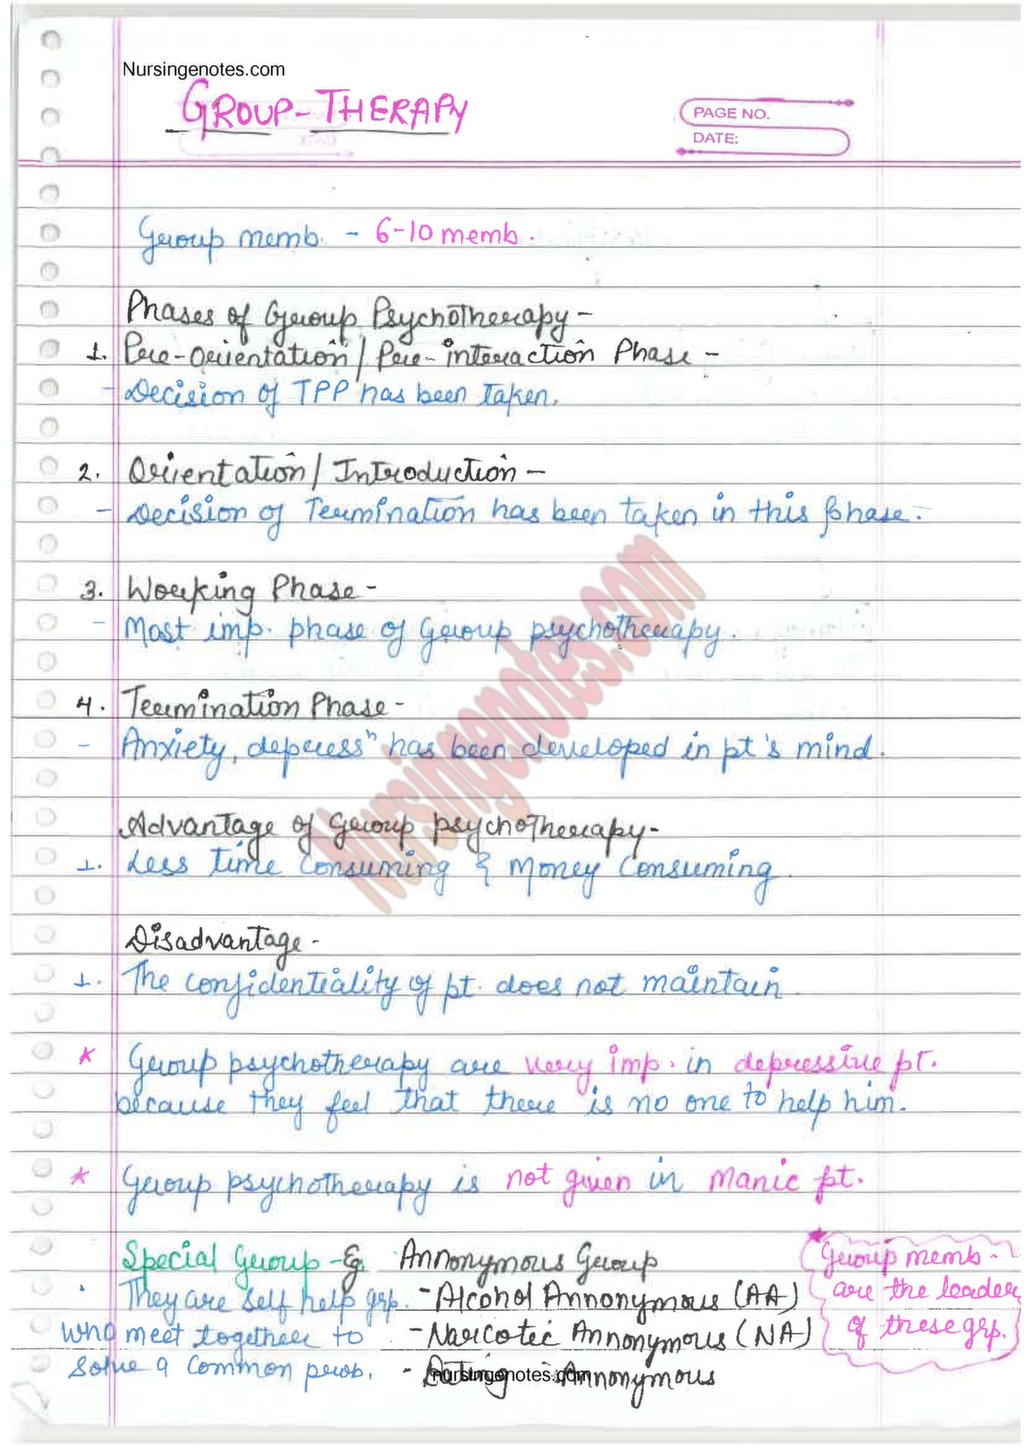 Nursingenotes.com
GROUP-THERAPY
PAGE NO.
DATE:
Group memb. - 6-10 memb.
Phases of Group Psychotherapy -
1. Pre-Orientation / Pre-interaction Phase -
- Decision of TPP has been taken.
2. Orientation / Introduction -
- Decision of Termination has been taken in this phase.
3. Working Phase -
- Most imp. phase of Group psychotherapy.
4. Termination Phase -
- Anxiety, depressⁿ has been developed in pt's mind.
Advantage of Group psychotherapy -
1. Less time consuming & Money Consuming.
Disadvantage -
1. The confidentiality of pt. does not maintain.
* Group psychotherapy are very imp. in depressive pt.
because they feel that there is no one to help him.
* Group psychotherapy is not given in Manic pt.
Special Group - Eg. Annonymous Group
They are self help grp. - Alcohol Annonymous (AA)
who meet together to - Narcotic Annonymous (NA)
solve a common prob. - Eating Annonymous
* Group memb -
are the leader
of these grp.
Nursingenotes.com
nursingenotes.com